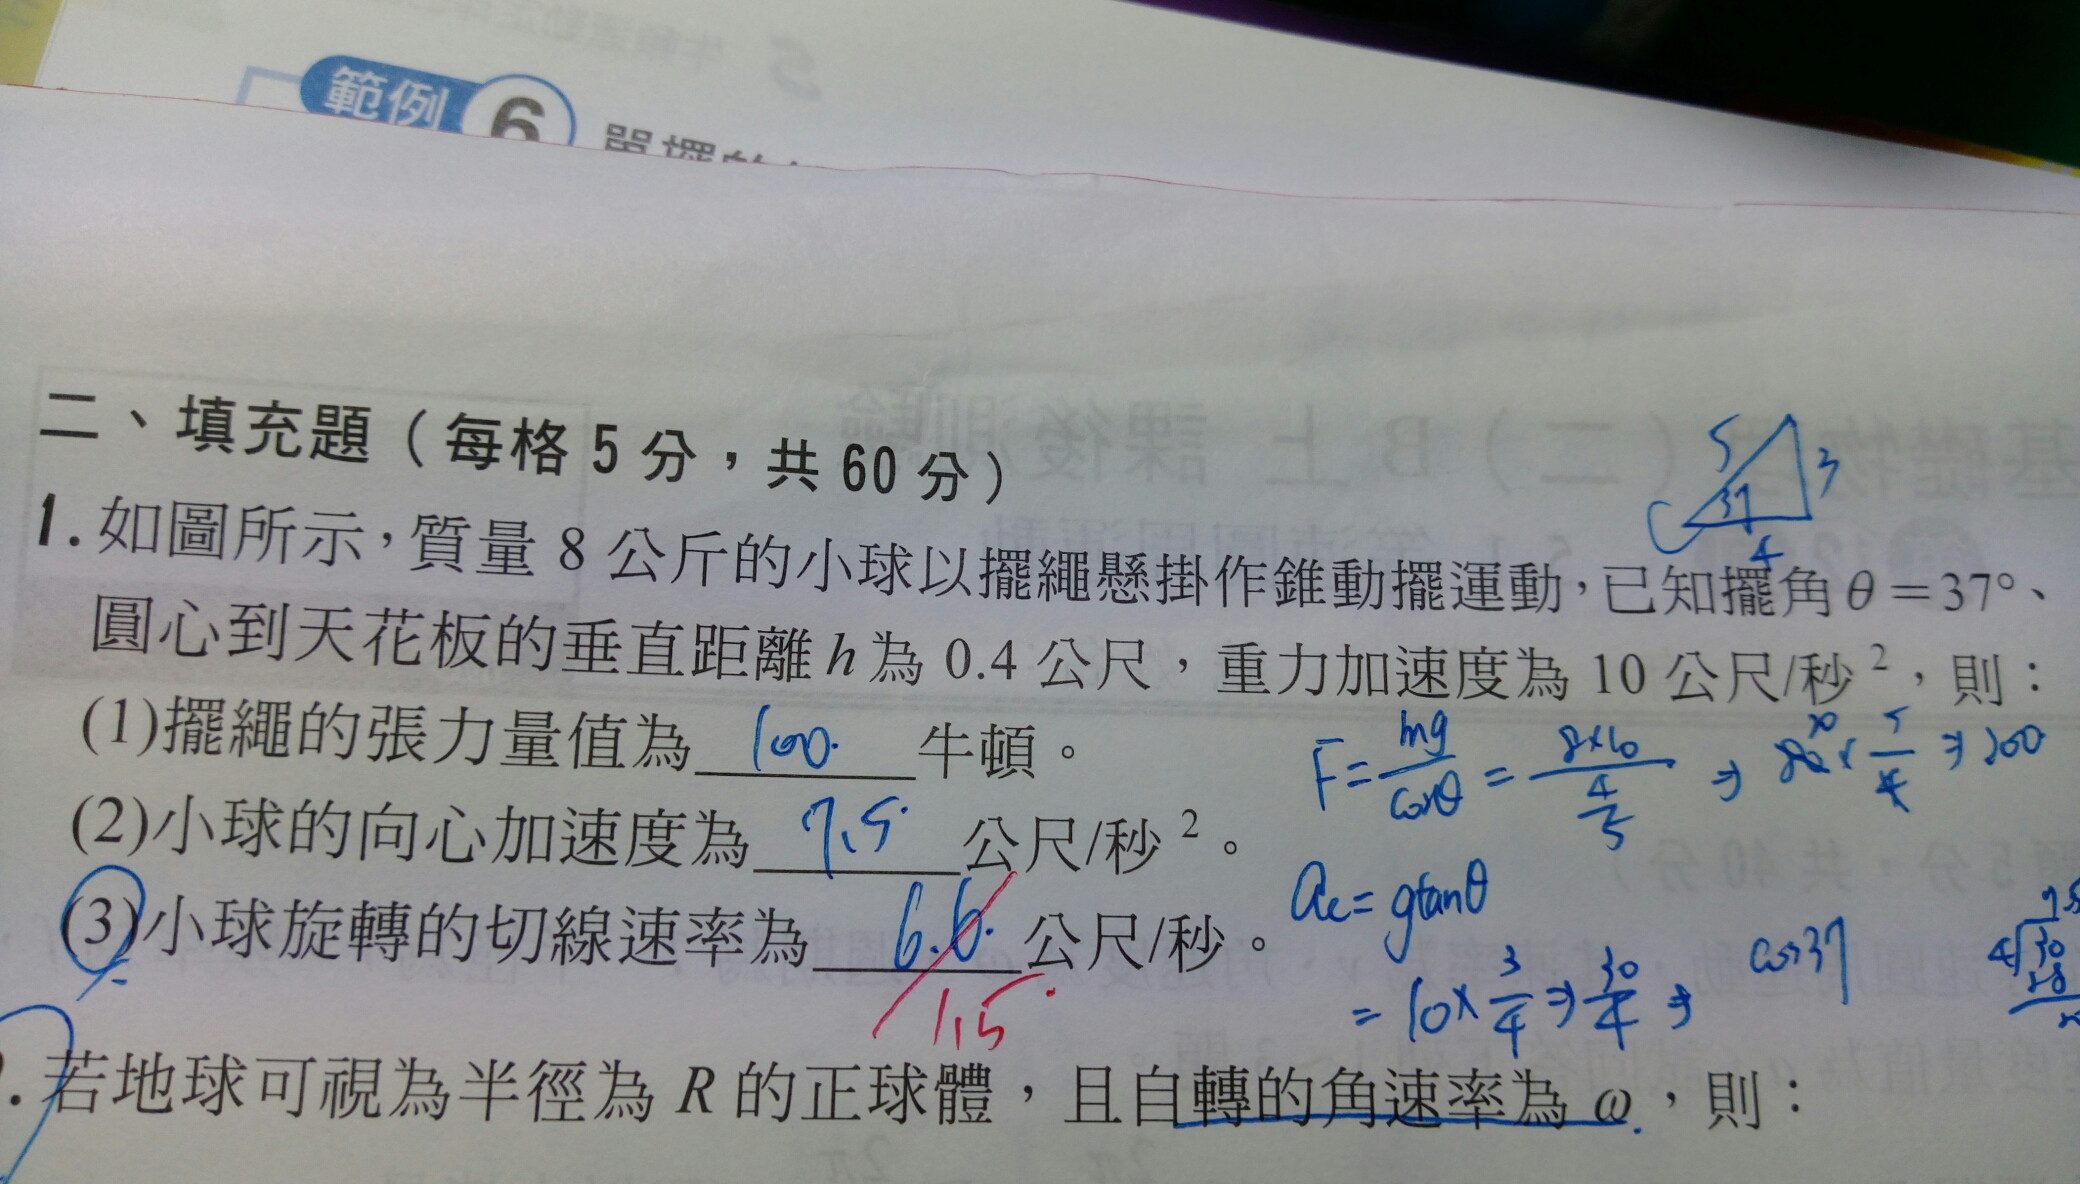 範例 6 單擺的
二、填充題（每格 5 分，共 60 分）
5 3
37
4
1. 如圖所示，質量 8 公斤的小球以擺繩懸掛作錐動擺運動，已知擺角 θ＝37°、
圓心到天花板的垂直距離 h 為 0.4 公尺，重力加速度為 10 公尺/秒²，則：
(1)擺繩的張力量值為 100. 牛頓。
F = mg/cosθ = 8×10/(4/5) ⇒ 80 × 5/4 ⇒ 100
(2)小球的向心加速度為 7.5 公尺/秒²。
ac = gtanθ
(3)小球旋轉的切線速率為 6.6. 公尺/秒。
1.5
= 10 × 3/4 ⇒ 30/4 ⇒
cos37
7.5
4 30
28
. 若地球可視為半徑為 R 的正球體，且自轉的角速率為 ω，則：